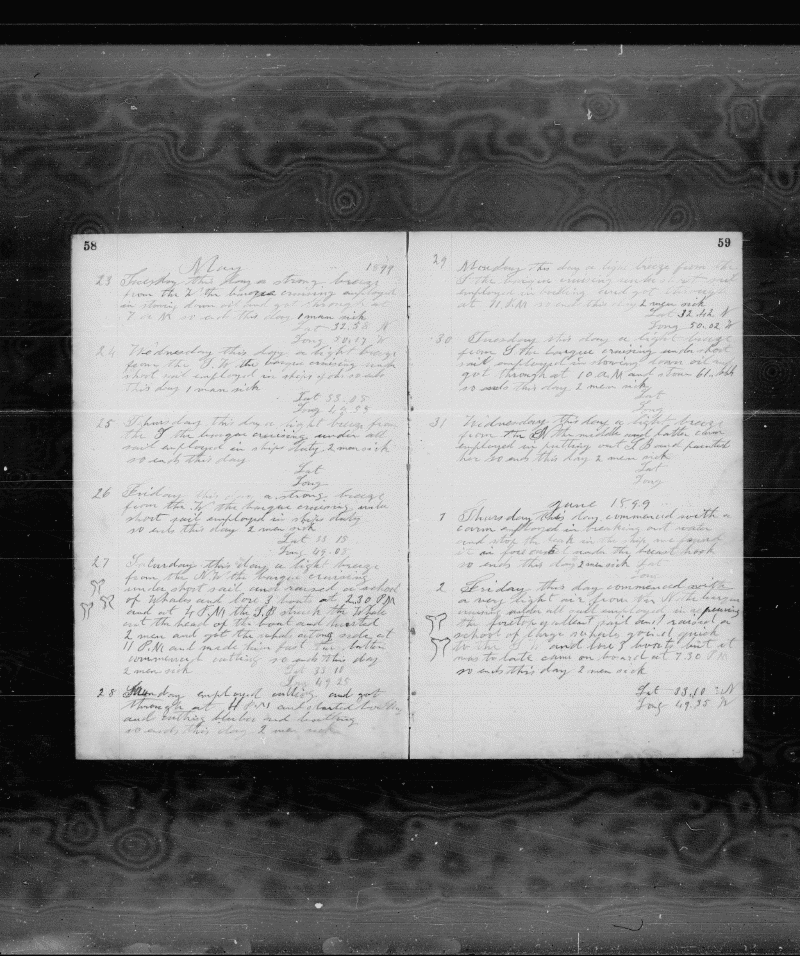 58
May 1899
23 Tuesday this day a strong breeze
from the W the barque cruising employed
in
7 a M so ends this day 1 man sick
Lat 32.58 N
Long 50.17 W
24 Wednesday this day a light breeze
from the S.W. the barque cruising under
short sail employed in ships jobs so ends
this day 1 man sick
Lat 33.05
Long 49.54
25 Thursday this day a light breeze from
the S the barque cruising under all
sail employed in ships duty 2 men sick
so ends this day
Lat
Long
26 Friday this day a strong breeze
from the W the barque cruising under
short sail employed in ships duty
so ends this day 2 men sick
Lat 33 18
Long 49.08
27 Saturday this day a light breeze
from the N.W the barque cruising
under short sail and raised a school
of whales and lore 3 boats at 2.30 P.M
and at 4 P.M the S.B struck the Whale
the head of the boat and
2 men and got the whale along side at
11 P.M and made him fast the latter
commenced cutting so ends this day
2 men sick Lat 33 10
Long 49 25
28 Sunday employed cutting and got
through at 11 and started boiling
and cutting bluber and boiling
so ends this day 2 men sick
59
29 Monday this day a light breeze from the
S the barque cruising under short sail
employed in boiling and got through
at 11 P.M so ends this day 2 men sick
Lat 32.42 N
Long 50.02 W
30 Tuesday this day a light breeze
from S the barque cruising under short
sail employed in stowing down oil and
got through at 10 a.M and stow 61 bbls
so ends this day 2 men sick
Lat
Long
31 Wednesday this day a light breeze
from the the middle and latter calm
employed by putting out S B and painted
her so ends this day 2 men sick
Lat
Long
June 1899
1 Thursday this day commenced with a
calm employed in breaking out water
and stop the leak in the ship we found
it in forepeak under the breast hook
so ends this day 2 men sick Lat
Long
2 Friday this day commenced with
a very light air from the N the barque
cruising under all sail employed in repairing
the foretopgallent sail and raised a
school of large whales going quick
to the S. and lore 3 boats but it
was to late came on board at 7 30 P M
so ends this day 2 men sick
Lat 33.10 N
Long 49.35 W